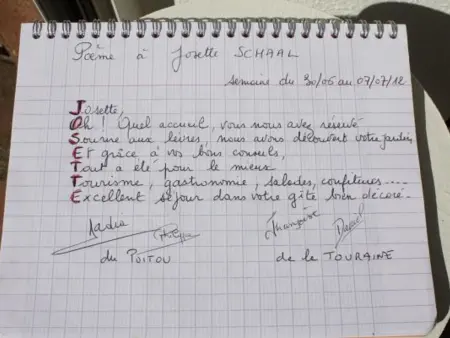 Poème à Josette SCHAAL
semaine du 30/06 au 07/07/12
Josette,
Oh ! Quel accueil, vous nous avez réservé
Sourire aux lèvres nous avons découvert votre jardin,
Et grâce à vos bons conseils,
Tout a été pour le mieux
Tourisme, gastronomie, salades, confitures.....
Excellent séjour dans votre gîte bien décoré.
Nadia
Françoise Daniel
du POITOU
de la TOURAINE